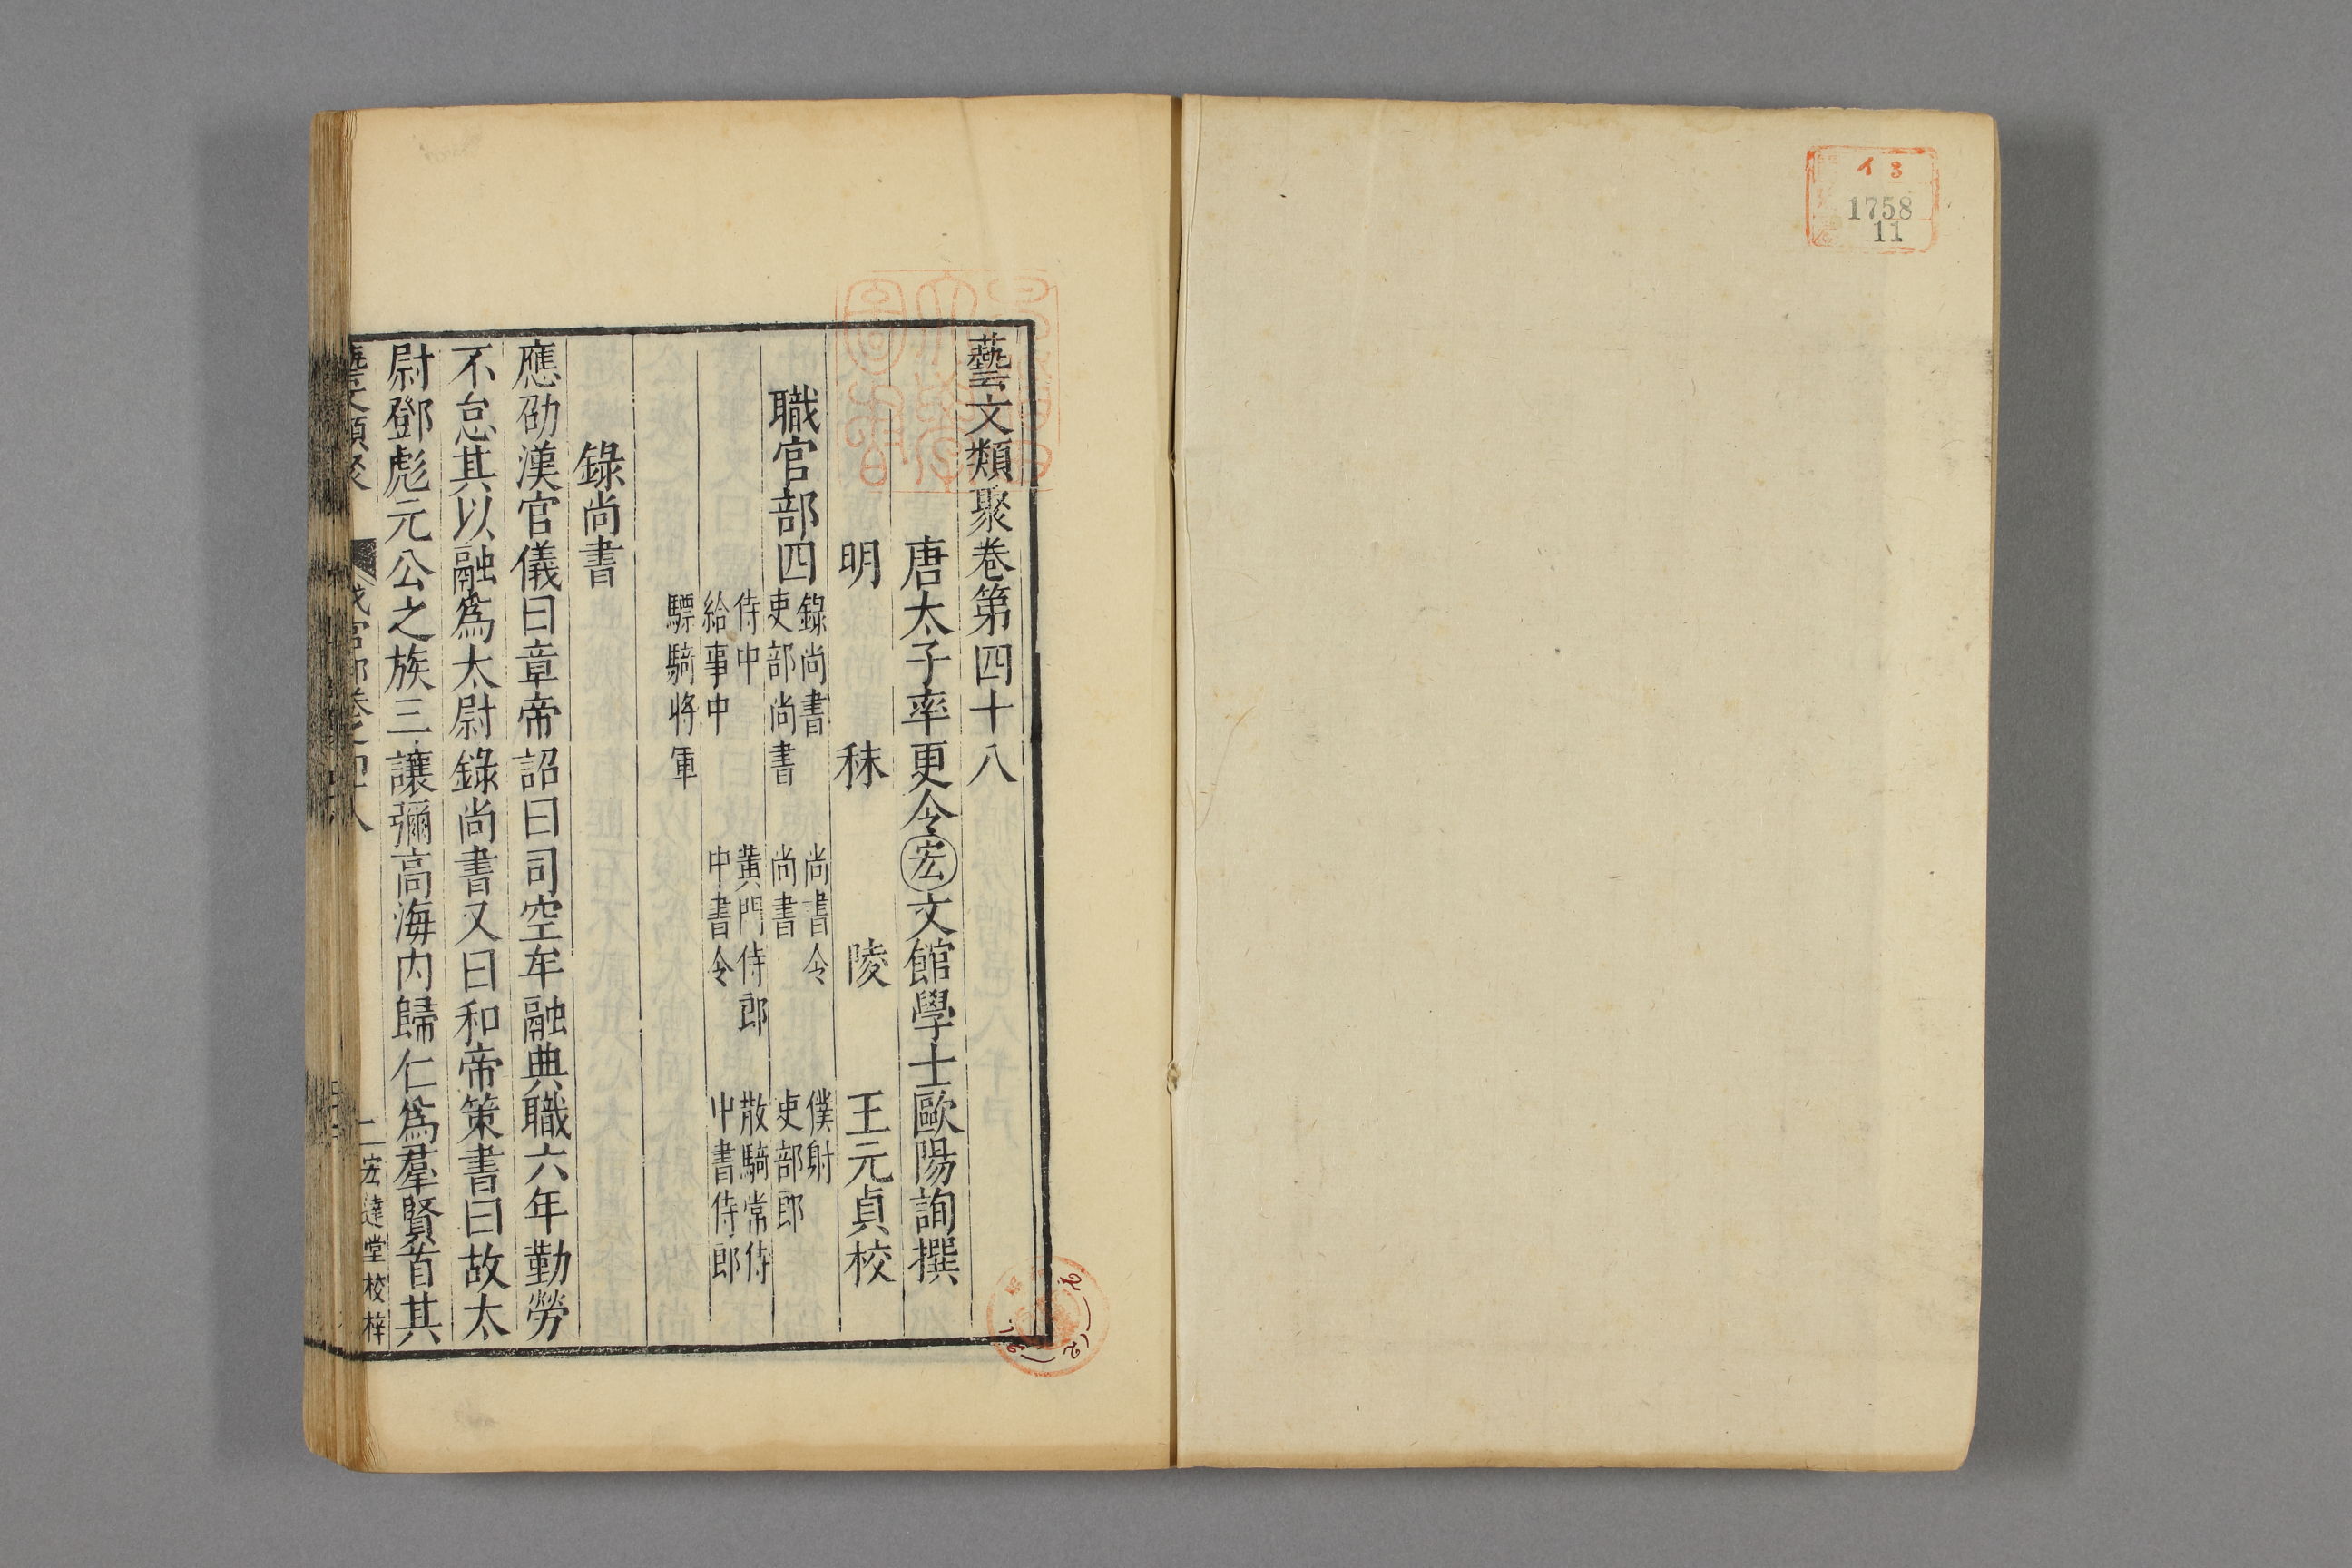 イ3
1758
11
藝文類聚卷第四十八
唐太子率更令宏文館學士歐陽詢撰
明 秣 陵 王元貞校
職官部四
錄尚書 尚書令 僕射
吏部尚書 尚書 吏部郎
侍中 黃門侍郎 散騎常侍
給事中 中書令 中書侍郎
驃騎將軍
錄尚書
應劭漢官儀曰章帝詔曰司空牟融典職六年勤勞
不怠其以融為太尉錄尚書又曰和帝策書曰故太
尉鄧彪元公之族三讓彌高海內歸仁為羣賢首其
藝文類聚 職官部卷之四十八 一 宏達堂校梓